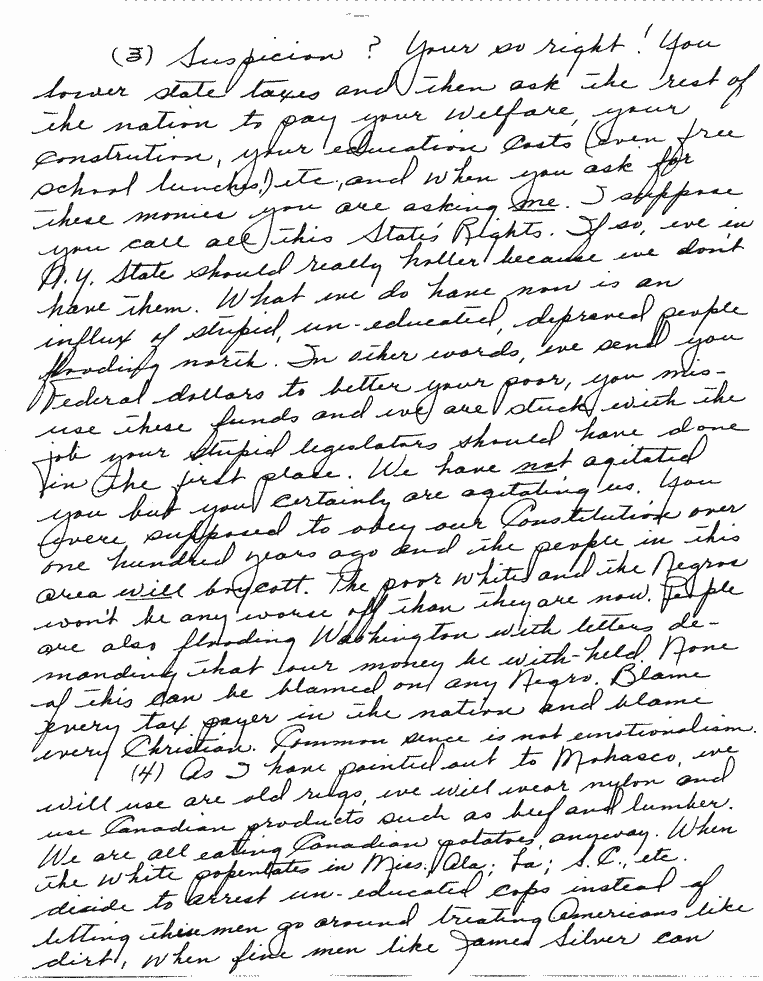 (3) Suspicion? Your so right! You
lower state taxes and then ask the rest of
the nation to pay your welfare, your
constrution, your education costs (even free
school lunches!) etc, and when you ask for
these monies you are asking me. I suppose
you call all this State's Rights. If so, we in
N.Y. State should really holler because we don't
have them. What we do have now is an
influx of stupid, un-educated, depraved people
flooding north. In other words, we send you
Federal dollars to better your poor, you mis-
use these funds and we are stuck with the
job your stupid legislators should have done
in the first place. We have not agitated
you but you certainly are agitating us. You
were supposed to obey our Constitution over
one hundred years ago and the people in this
area will boycott. The poor white and the Negros
won't be any worse off than they are now. People
are also flooding Washington with letters de-
manding that our money be with-held. None
of this can be blamed on any Negro. Blame
every tax payer in the nation and blame
every Christian. Common sence is not emotionalism.
(4) As I have pointed out to Mohasco, we
will use are old rugs, we will wear nylon and
use Canadian products such as beef and lumber.
We are all eating Canadian potatoes, anyway. When
the white popentates in Miss. Ala; La; S.C., etc.
diside to arrest un-educated cops instead of
letting these men go around treating Americans like
dirt, when fine men like James Silver can